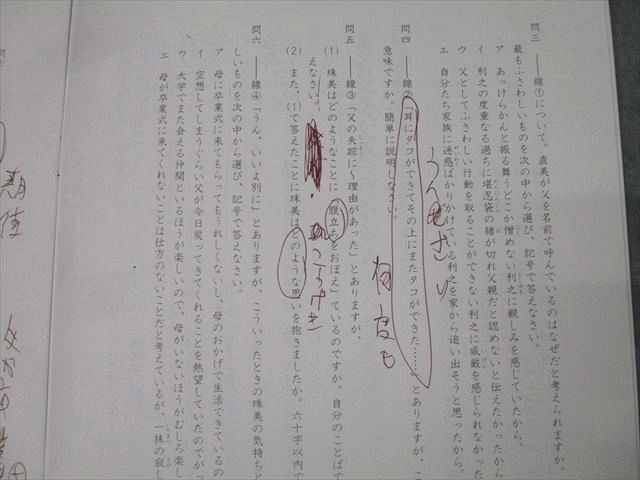 問三 ――線①について。直美が父を名前で呼んでいるのはなぜだと考えられますか。
最もふさわしいものを次の中から選び、記号で答えなさい。
ア あっけらかんと振る舞うどこか憎めない利之に親しみを感じていたから。
イ 利之の度重なる過ちに堪忍袋の緒が切れ父親だと認めないと伝えたかったから
ウ 父としてふさわしい行動を取ることができない利之に威厳を感じられなかった
エ 自分たち家族に迷惑ばかりかけている利之を家から追い出そうと思ったから。
問四 ――線②「耳にタコができてその上にまたタコができた……」とありますが、こ
意味ですか。簡単に説明しなさい。
うんざり
何度も
問五 ――線③「父の失踪に〜理由があった」とありますが、
(1) 珠美はどのようなことに「腹立ちをおぼえ」ているのですか。自分のことばで
えなさい。
(2) また、(1)で答えたことに珠美はどのような思いを抱きましたか。六十字以内で
問六 ――線④「うん、いいよ別に」とありますが、こういったときの珠美の気持ちと
しいものを次の中から選び、記号で答えなさい。
ア 母に卒業式に来てもらってもうれしくないし、母のおかげで生活できているの
イ 空想してしまうぐらい父が今日戻ってきてくれることを熱望していたのでがっ
ウ 大学でまた会える仲間といるほうが楽しいので、母がいないほうがむしろ楽し
エ 母が卒業式に来てくれないことは仕方のないことだと考えているが、一抹の寂し